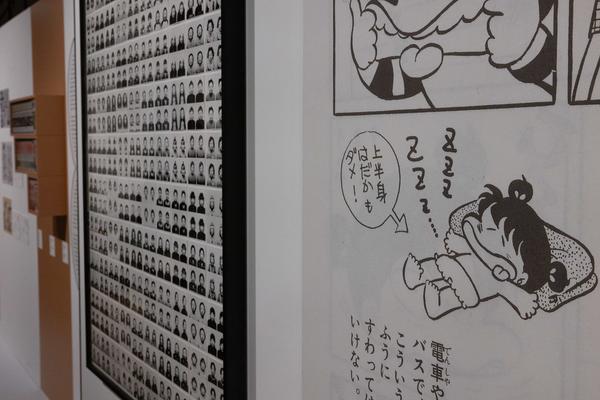 上半身
はだかも
ダメ！
ZZZ
ZZZz
電車や
でんしゃ
バスで、
こういう
ふうに
すわっては
いけない。